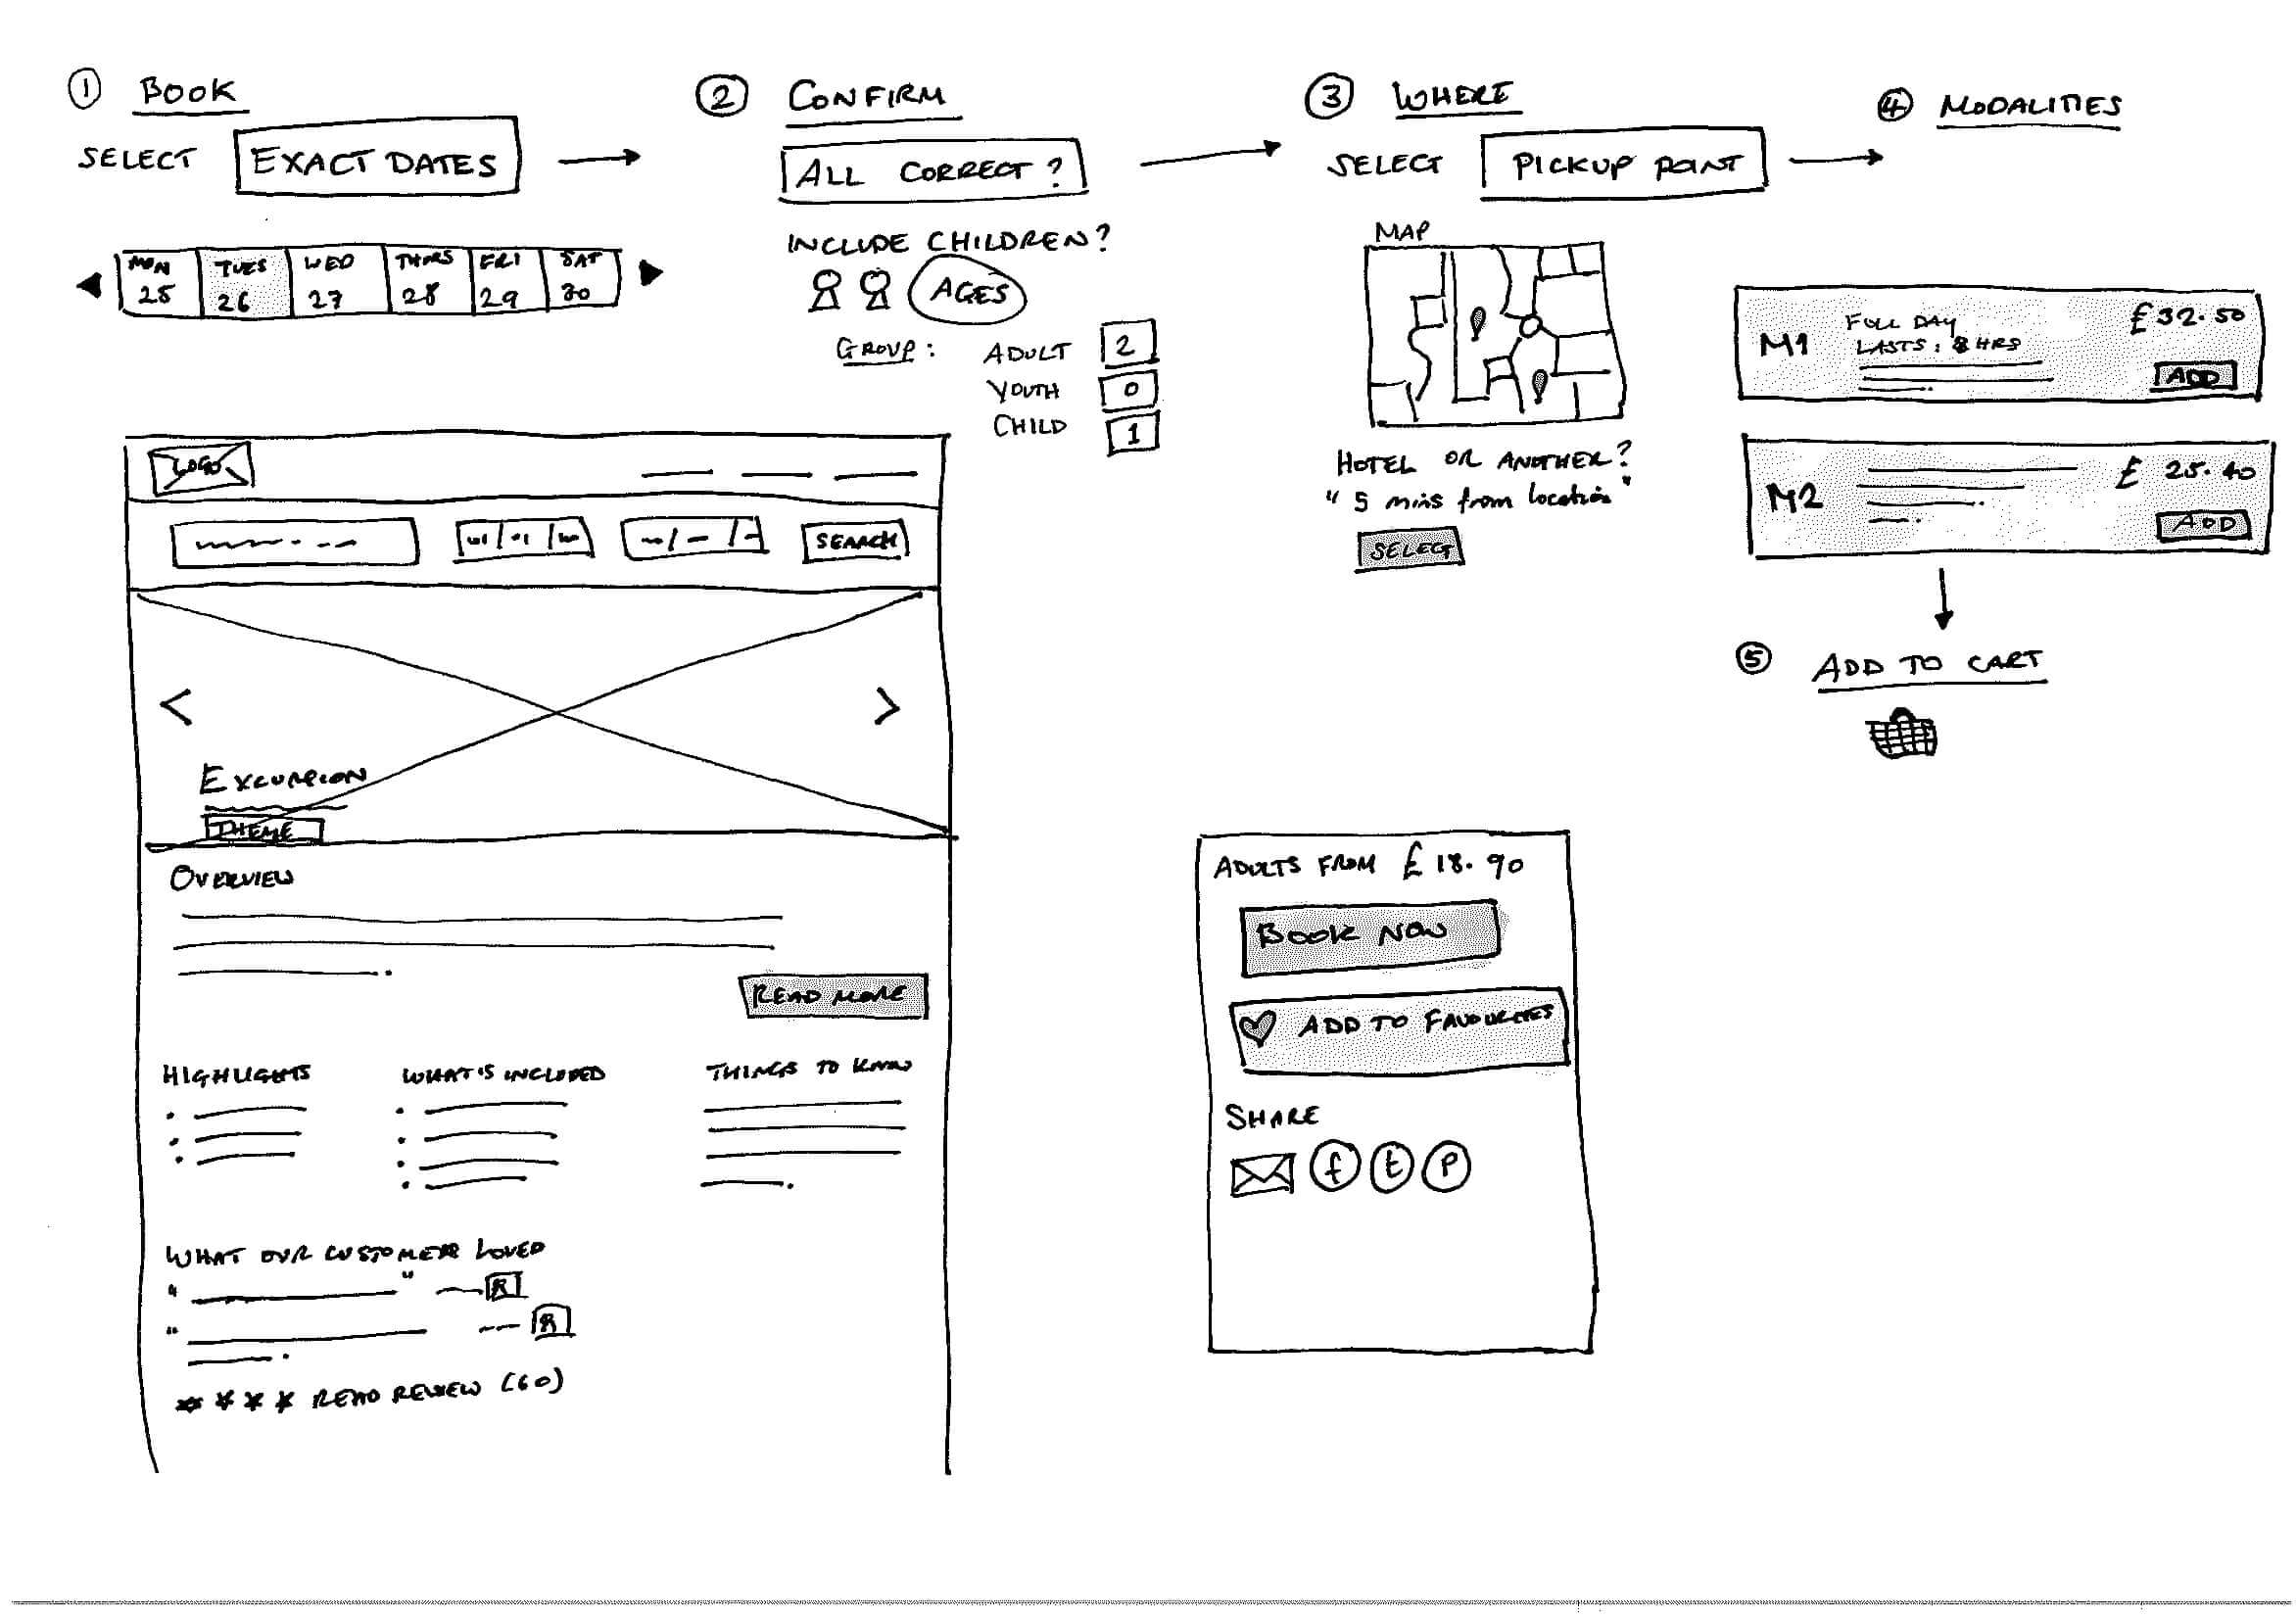 ① BOOK
SELECT EXACT DATES
MON TUES WED THURS FRI SAT
25 26 27 28 29 30
② CONFIRM
ALL CORRECT?
INCLUDE CHILDREN?
AGES
GROUP: ADULT 2
YOUTH 0
CHILD 1
③ WHERE
SELECT PICKUP POINT
MAP
HOTEL OR ANOTHER?
"5 mins from location"
SELECT
④ MODALITIES
M1 FULL DAY £32.50
LASTS: 8 HRS
ADD
M2 £25.40
ADD
⑤ ADD TO CART
LOGO
SEARCH
< >
EXCURSION
THEME
OVERVIEW
READ MORE
HIGHLIGHTS WHAT'S INCLUDED THINGS TO KNOW
WHAT OUR CUSTOMERS LOVED
R
R
**** READ REVIEW (60)
ADULTS FROM £18.90
BOOK NOW
ADD TO FAVOURITES
SHARE
f t P